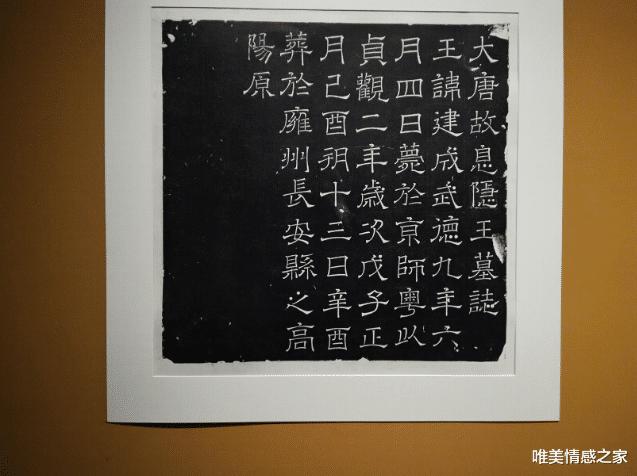 大唐故息隱王墓誌
王諱建成武德九年六
月四日薨於京師粵以
貞觀二年歲次戊子正
月己酉朔十三日辛酉
葬於雍州長安縣之高
陽原
唯美情感之家